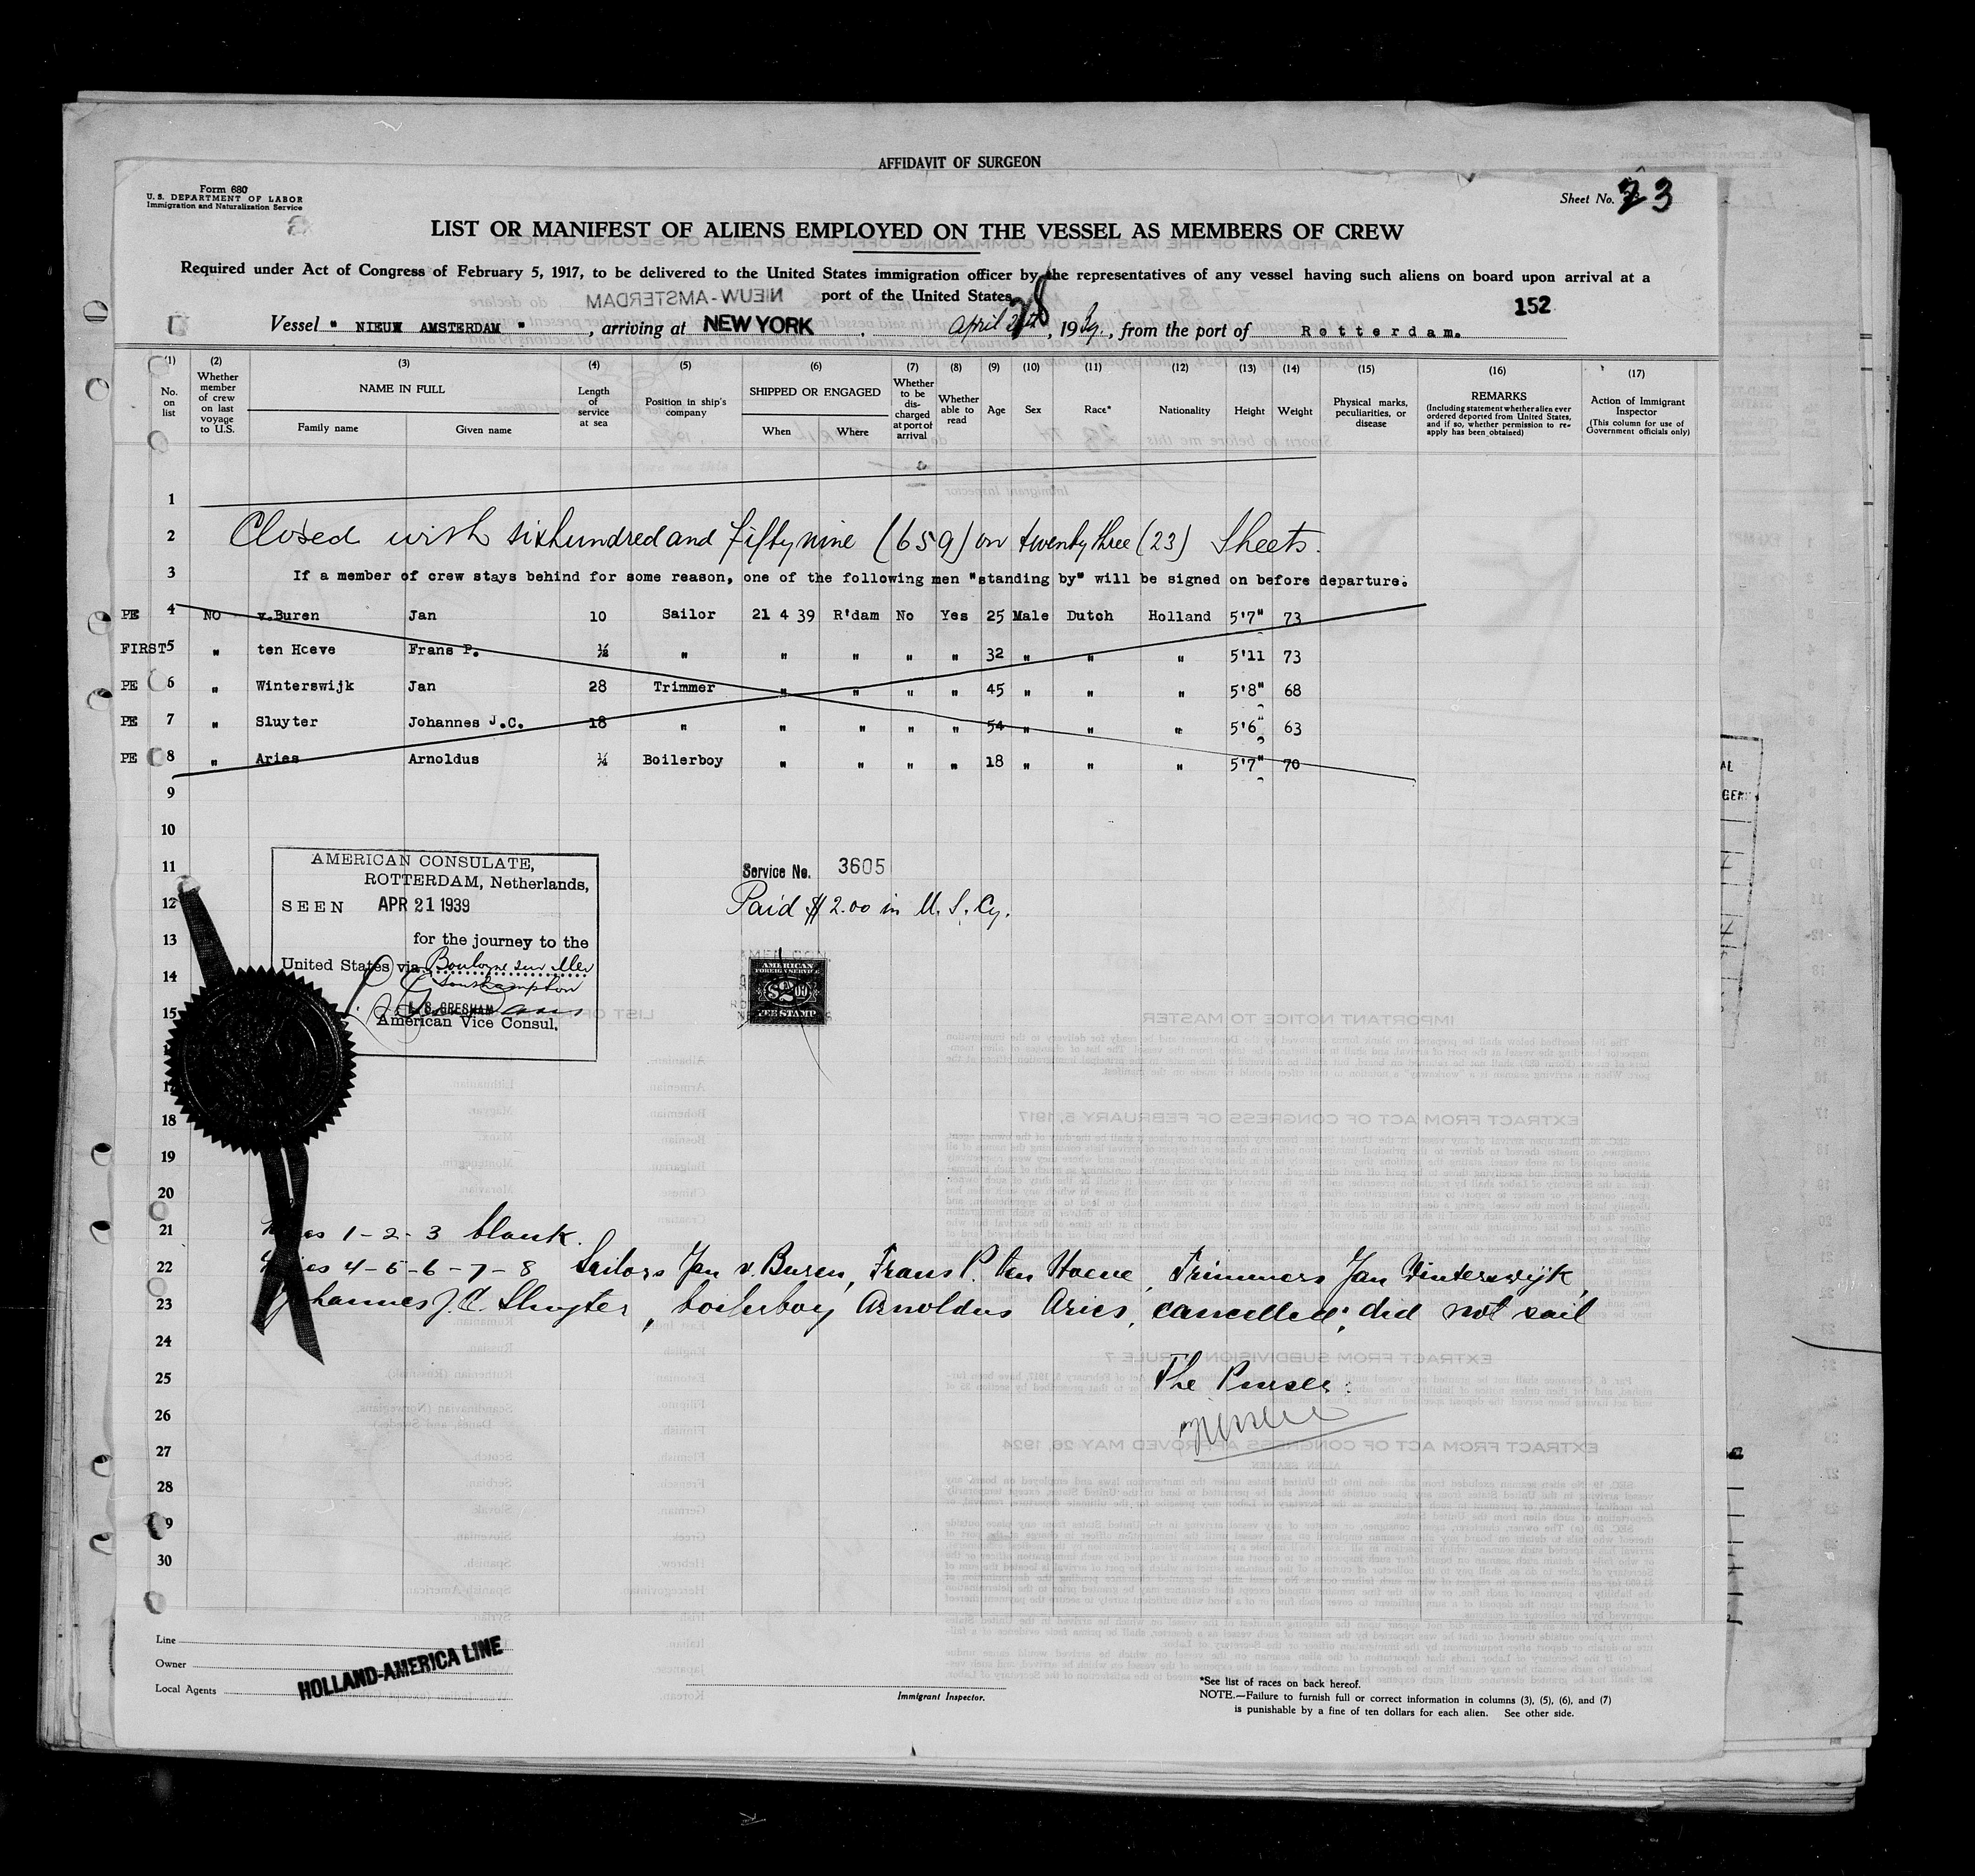 AFFIDAVIT OF SURGEON
Form 680
U. S. DEPARTMENT OF LABOR
Immigration and Naturalization Service
Sheet No. 23
LIST OR MANIFEST OF ALIENS EMPLOYED ON THE VESSEL AS MEMBERS OF CREW
Required under Act of Congress of February 5, 1917, to be delivered to the United States immigration officer by the representatives of any vessel having such aliens on board upon arrival at a
port of the United States
152
Vessel " NIEUW AMSTERDAM ", arriving at NEW YORK, April 28, 1939, from the port of Rotterdam.
(1) (2) (3) (4) (5) (6) (7) (8) (9) (10) (11) (12) (13) (14) (15) (16) (17)
No. on list
Whether member of crew on last voyage to U.S.
NAME IN FULL
Family name
Given name
Length of service at sea
Position in ship's company
SHIPPED OR ENGAGED
When
Where
Whether to be discharged at port of arrival
Whether able to read
Age
Sex
Race*
Nationality
Height
Weight
Physical marks, peculiarities, or disease
REMARKS
(Including statement whether alien ever ordered deported from United States, and if so, whether permission to reapply has been obtained)
Action of Immigrant Inspector
(This column for use of Government officials only)
1
2 Closed with sixhundred and fifty nine (659) on twenty three (23) Sheets.
3 If a member of crew stays behind for some reason, one of the following men "standing by" will be signed on before departure.
PE 4 NO v.Buren Jan 10 Sailor 21 4 39 R'dam No Yes 25 Male Dutch Holland 5'7" 73
FIRST 5 " ten Hoeve Frans P. ½ " " " " " 32 " " " 5'11 73
PE 6 " Winterswijk Jan 28 Trimmer " " " " 45 " " " 5'8" 68
PE 7 " Sluyter Johannes J.C. 18 " " " " " 54 " " " 5'6" 63
PE 8 " Aries Arnoldus ¼ Boilerboy " " " " 18 " " " 5'7" 70
9
10
11
12
13
14
15
18
19
20
AMERICAN CONSULATE,
ROTTERDAM, Netherlands,
SEEN APR 21 1939
for the journey to the
United States via Boulogne sur Mer
Southampton
GRESHAM
American Vice Consul.
Service No. 3605
Paid $2.00 in U. S. Cy.
AMERICAN
FOREIGN SERVICE
$2.00
FEE STAMP
21 1-2-3 blank.
22 4-5-6-7-8 Sailors Jan v. Buren, Frans P. ten Hoeve, Trimmers Jan Winterswijk,
23 Johannes J.C. Sluyter, boilerboy Arnoldus Aries, cancelled; did not sail
24
25 The Purser:
26
27
28
29
30
Line
Owner
Local Agents
HOLLAND-AMERICA LINE
Immigrant Inspector.
*See list of races on back hereof.
NOTE.—Failure to furnish full or correct information in columns (3), (5), (6), and (7)
is punishable by a fine of ten dollars for each alien. See other side.